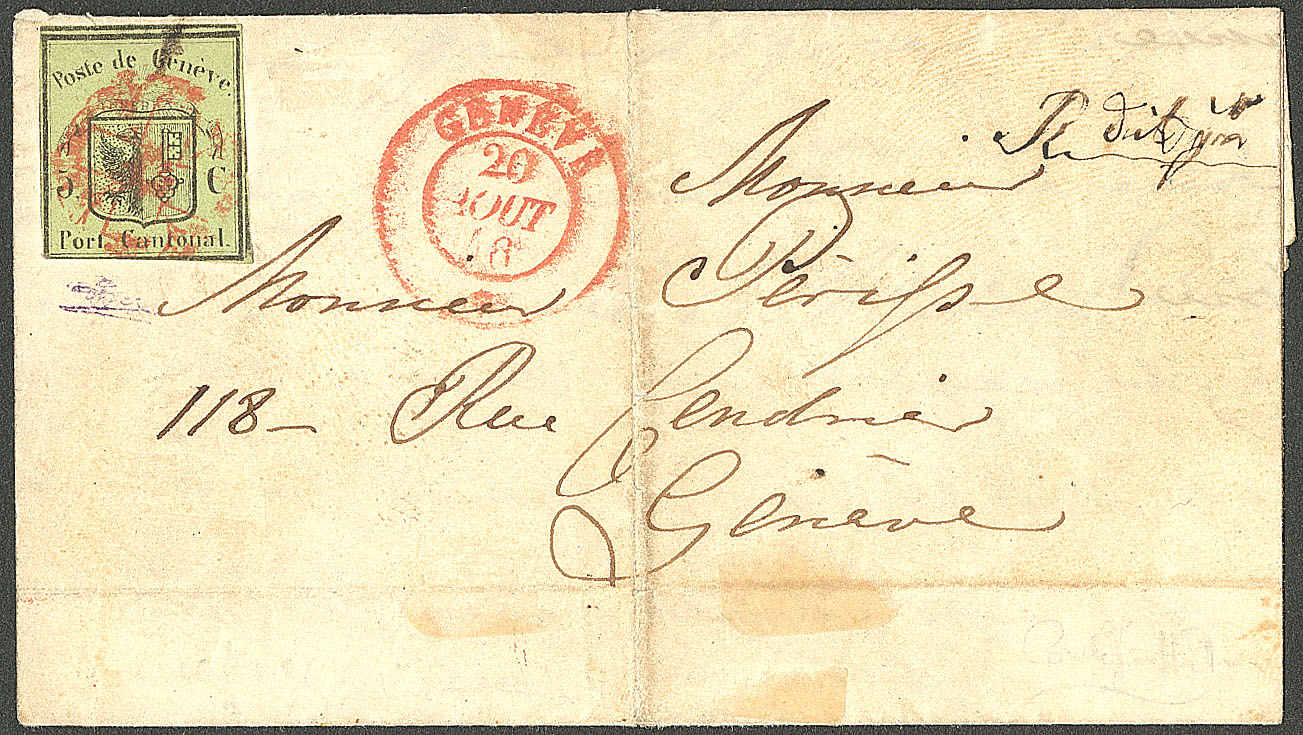 Poste de Genève.
5 C
Port Cantonal.
GENEVE
20
AOUT
Monsieur
Monsieur Périsse
118 - Rue Cendrier
Genève